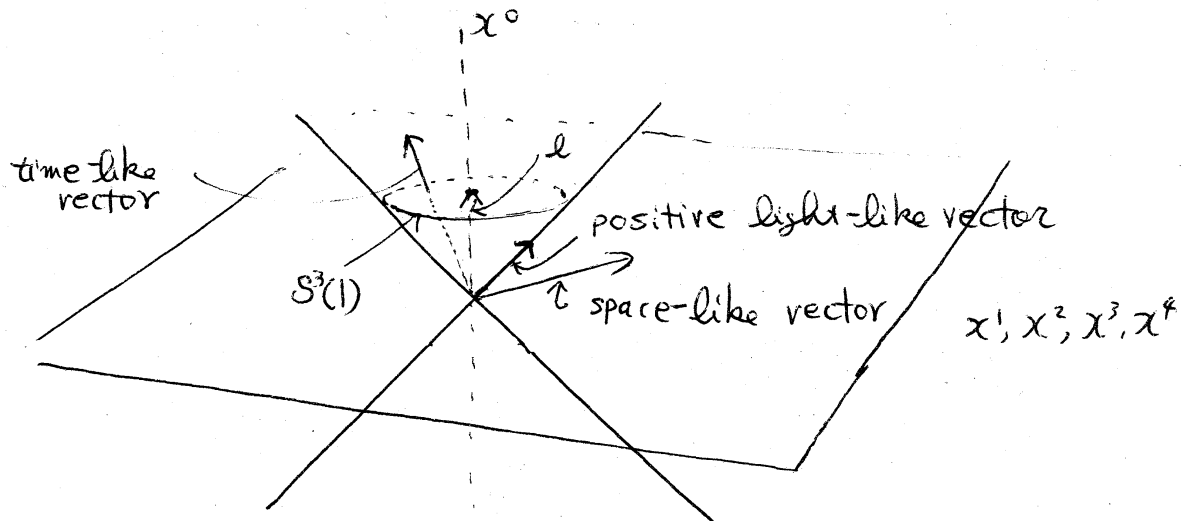 x⁰
time-like
vector
l
positive light-like vector
S³(1)
space-like vector
x¹, x², x³, x⁴